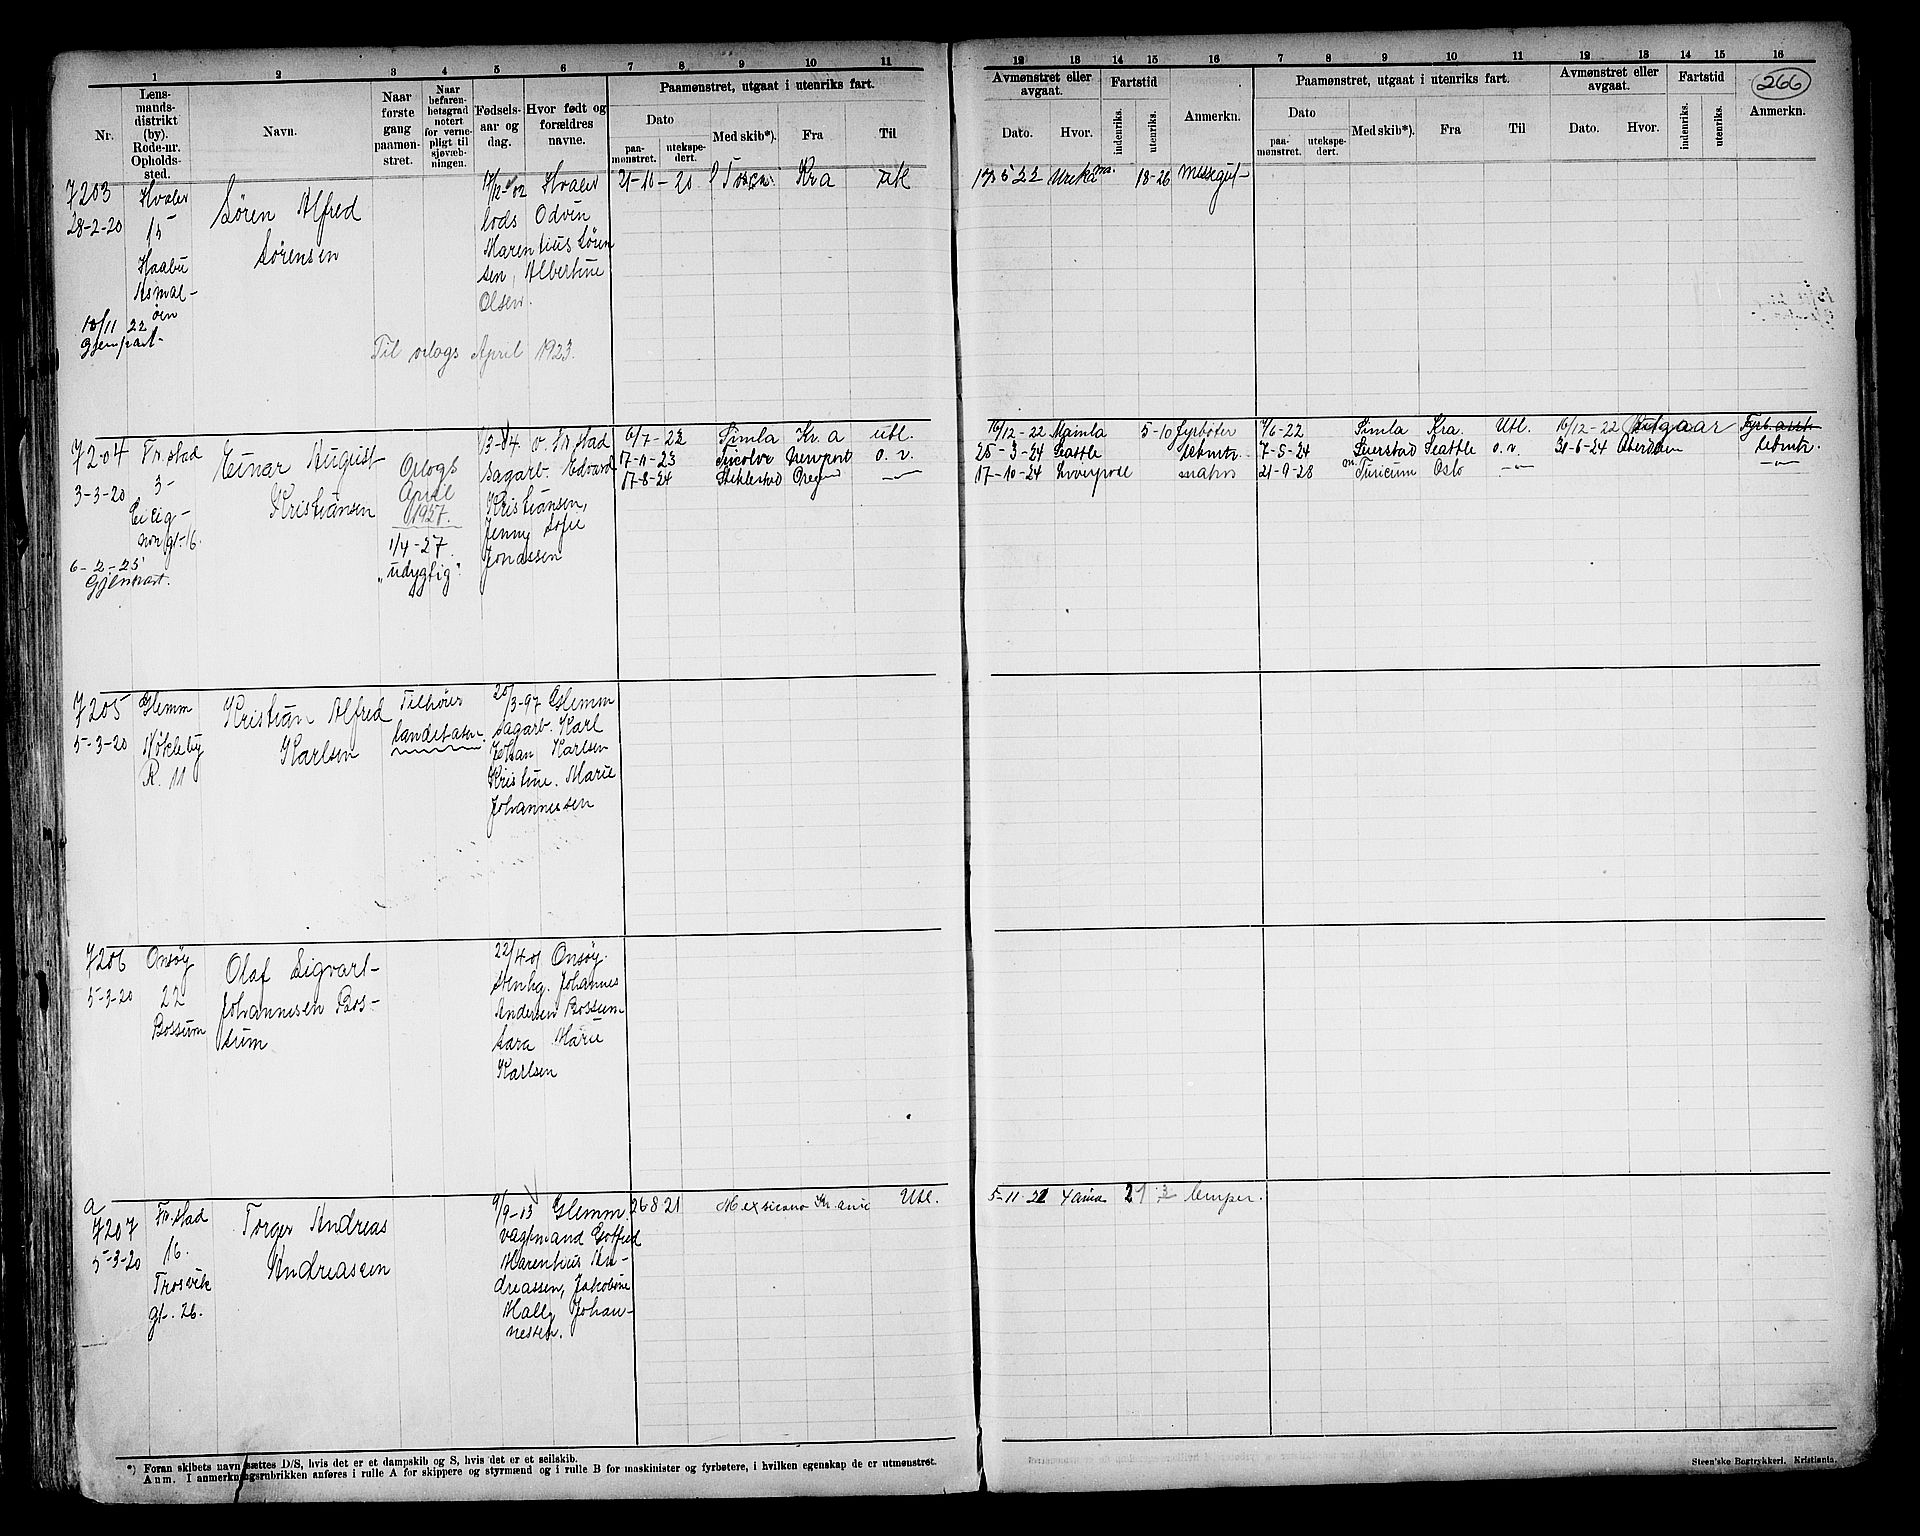 1 2 3 4 5 6 7 8 9 10 11
Nr.
Lens-
mands-
distrikt
(by).
Rode-nr.
Opholds-
sted.
Navn.
Naar
første
gang
paamøn-
stret.
Naar
befaren-
hetsgrad
notert
for verne-
pligt til
sjøvæb-
ningen.
Fødsels-
aar og
dag.
Hvor født og
forældres
navne.
Paamønstret, utgaat i utenriks fart.
Dato
paa-
mønstret.
utekspe-
dert.
Med skib*).
Fra
Til
12 13 14 15 16 7 8 9 10 11 12 13 14 15 16
Avmønstret eller
avgaat.
Dato.
Hvor.
Fartstid
indenriks.
utenriks.
Anmerkn.
Paamønstret, utgaat i utenriks fart.
Dato
paa-
mønstret.
utekspe-
dert.
Med skib*).
Fra
Til
Avmønstret eller
avgaat.
Dato.
Hvor.
Fartstid
indenriks.
utenriks.
266
Anmerkn.
7203
28-2-20
Hvaler
15
Haabu
Asmal-
øen
10/11 22
Gjenpart-
Søren Alfred
Sørensen
Til orlogs April 1923.
17/12-02 Hvaler
lods Odvin
Marentius Søren
sen, Albertine
Olsen.
21-10-20 Kra
5 22 18-26
7204
3-3-20
Fr.stad
3-
gt-16.
6-2-25
Gjenpart.
Einar August
Kristiansen
Orlogs
April
1927.
1/4-27.
"udygtig".
Fr.stad
sagarb. Edvard
Kristiansen,
Jenny Sofie
Jonassen
6/7-22 Simla Kr.a utl.
17-11-23 Newport o. v.
17-8-24 Stiklestad
16/12-22 5-10 fyrbøter 7/6-22 Simla Kra. Utl. 16/12-22
25-3-24 Seattle letmtr. 7-5-24 Leierstad Seattle o. v. 31-6-24 Aberdeen letmtr.
17-10-24 Liverpool matros 21-9-28 Turicum Oslo
7205
5-3-20
Glemm
Nøkleby
R. 11
Kristian Alfred
Karlsen
Tilhører
landetaten.
20/3-97 Glemm
sagarb. Karl
Johan Karlsen
Kristine Marie
Johannessen
7206
5-3-20
Onsøy
22
Bossum
Olaf Sigvart-
Johannesen Bos-
sum
22/4-01 Onsøy.
stenhg. Johannes
Andersen Bossum
Sara Marie
Karlsen
a
7207
5-3-20
Fr.stad
16.
Trosvik
gt. 26.
Torger Andreas
Andreassen
9/9-03 Glemm
vagtmand Gotfred
Marentius An-
dreassen, Jakobine
Mally Johan-
nessen.
26 8 21 Mexicano Utl.
5-11 21
*) Foran skibets navn sættes D/S, hvis det er et dampskib og S, hvis det er et seilskib.
Anm. I anmerkningsrubrikken anføres i rulle A for skippere og styrmænd og i rulle B for maskinister og fyrbøtere, i hvilken egenskap de er utmønstret.
Steen'ske Bogtrykkeri. Kristiania.